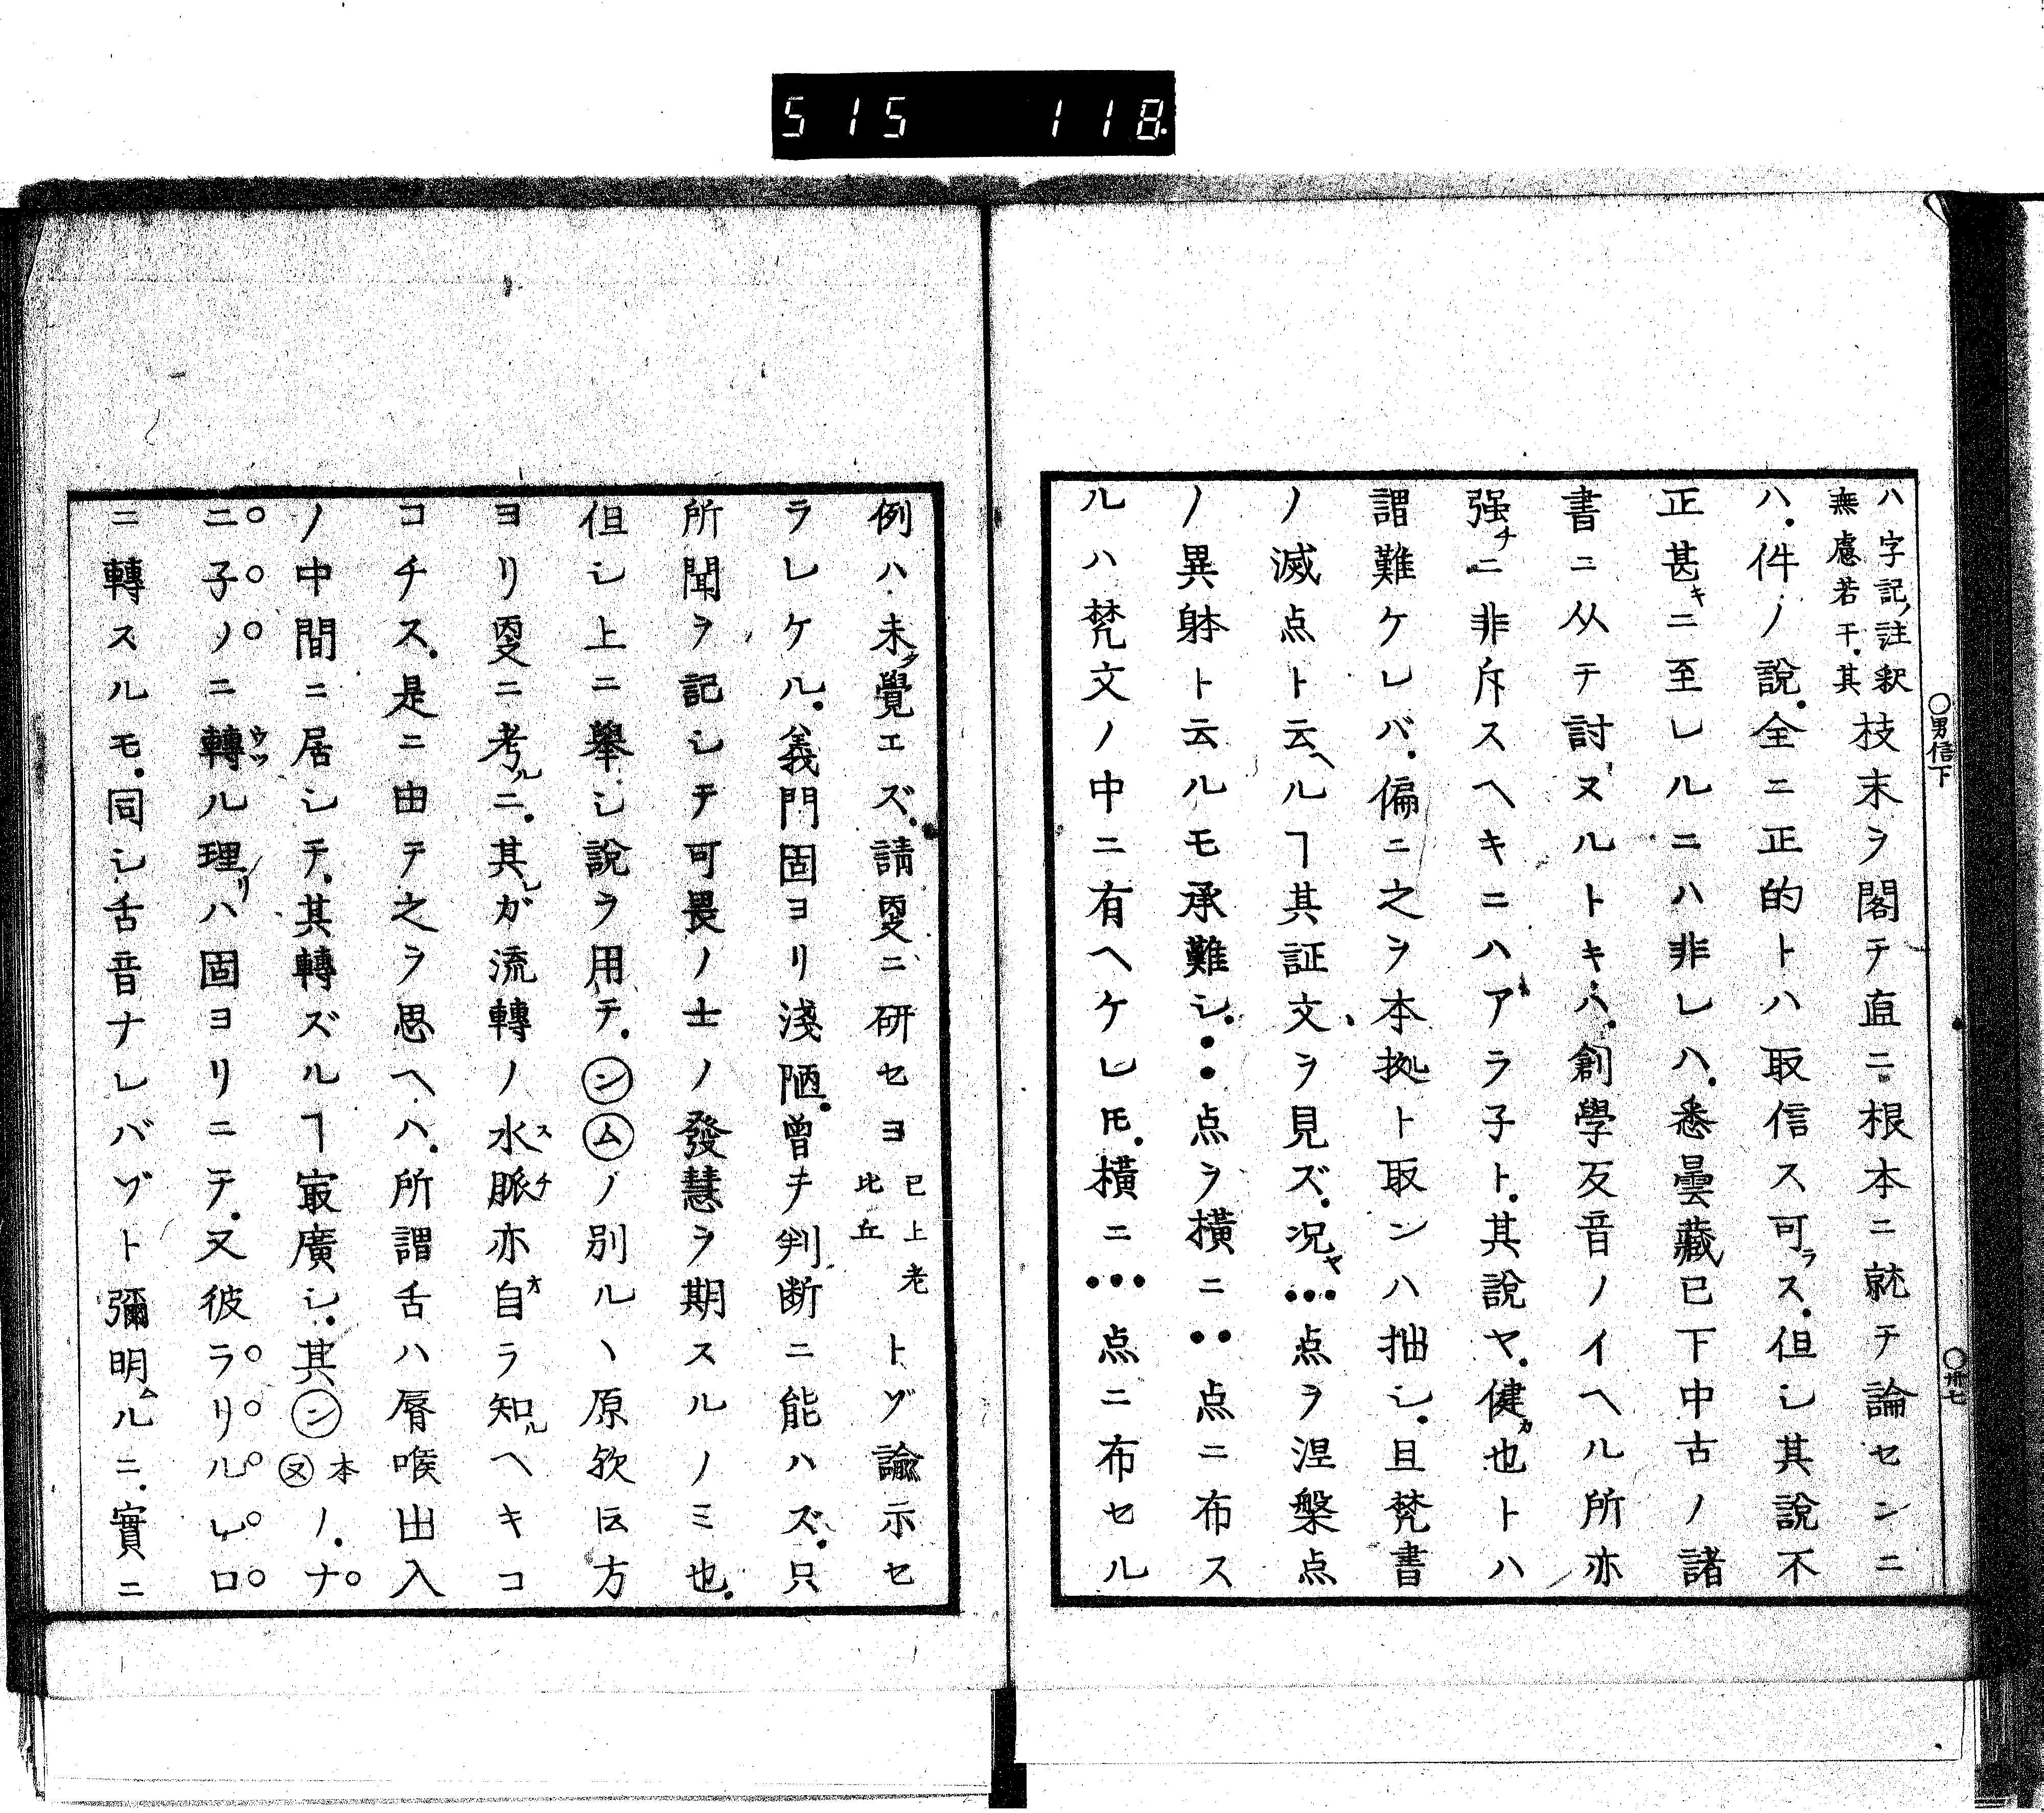 515 118
○男信下 ○卅七
ハ字記ノ註釈
無慮若干．其
枝末ヲ閣テ直ニ根本ニ就テ論センニ
ハ．件ノ說．全ニ正的トハ取信ス可ラス．但シ其說不
正甚キニ至レルニハ非レハ．悉曇藏已下中古ノ諸
書ニ从テ討ヌルトキハ．創學反音ノイヘル所亦
强チニ非斥スヘキニハアラ子ト．其說ヤ．健カ也トハ
謂難ケレバ．偏ニ之ヲ本拠ト取ンハ拙シ．且梵書
ノ滅点ト云ヘルヿ其証文ヲ見ズ．况ヤ●●●点ヲ涅槃点
ノ異躰ト云ルモ承難シ．●●点ヲ橫ニ●●点ニ布ス
ルハ梵文ノ中ニ有ヘケレ𪜈．橫ニ●●●点ニ布セル
例ハ未タ覺エズ．請㪅ニ研セヨ
已上老
比丘
トゾ諭示セ
ラレケル．義門固ヨリ淺陋．曾テ判断ニ能ハズ．只
所聞ヲ記シテ可畏ノ士ノ發慧ヲ期スルノミ也．
但シ上ニ舉シ說ヲ用テ．㋟ンムノ別ルヽ原欤ト云方
ヨリ㪅ニ考ルニ．其レガ流轉ノ水脈亦自ラ知ルヘキコ
コチス．是ニ由テ之ヲ思ヘハ．所謂舌ハ脣喉出入
ノ中間ニ居シテ．其轉ズルヿ㝡廣シ．其ン
本
ヌ
ノ．ナ
ニ子ノニ轉ル理リハ固ヨリニテ．又彼ラリルレロ
ニ轉スルモ．同シ舌音ナレバゾト彌明ムルニ．實ニ